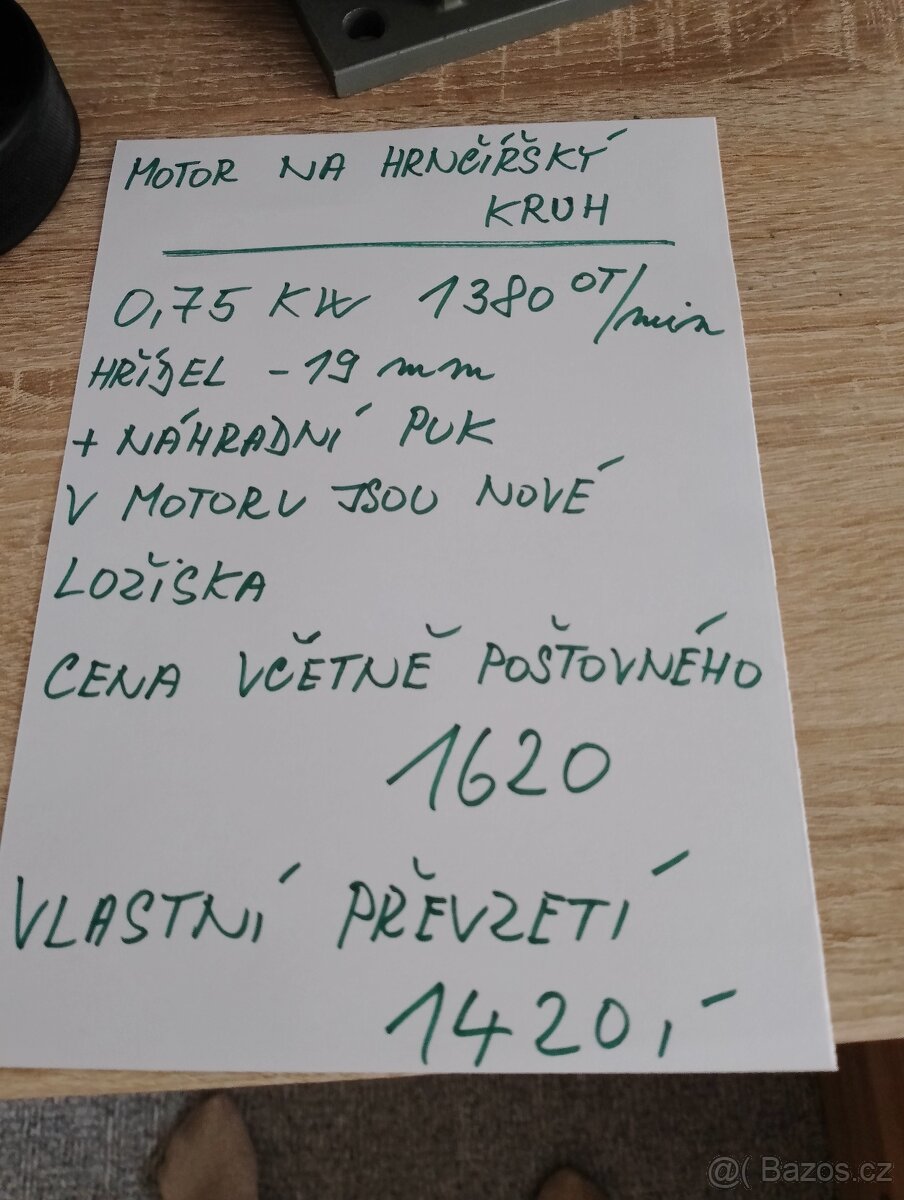 MOTOR NA HRNČÍŘSKÝ
KRUH
0,75 KW 1380 OT/min
HŘÍJEL - 19 mm
+ NÁHRADNÍ PUK
V MOTORU JSOU NOVÉ
LOŽISKA
CENA VČETNĚ POŠTOVNÉHO
1620
VLASTNÍ PŘEVZETÍ
1420,-
@( Bazos.cz